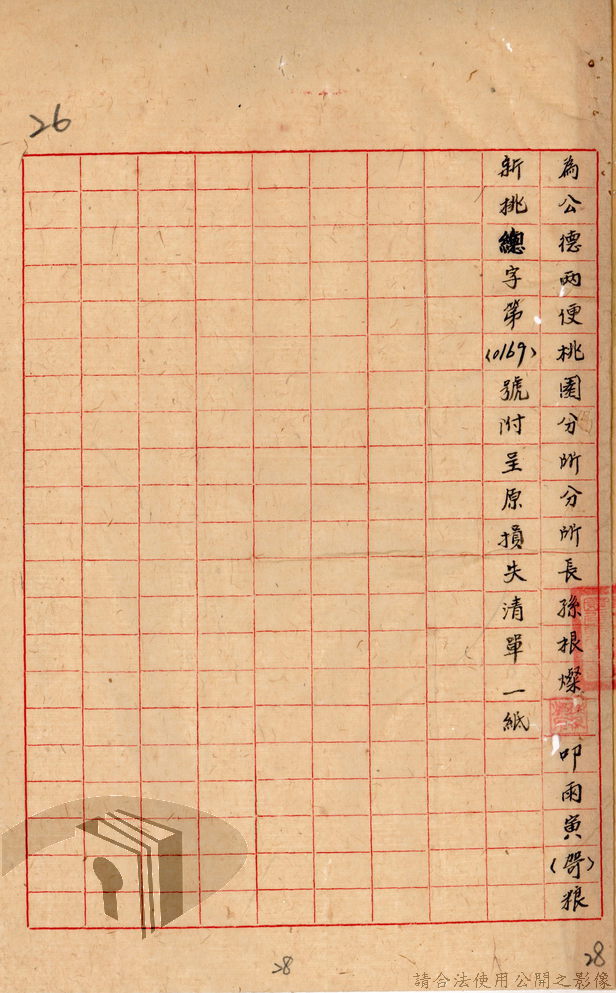 26
為公德兩便桃園分所分所長孫根燦 叩兩寅(哿)粮
新挑總字第(0169)號附呈原損失清單一紙
28
28
請合法使用公開之影像